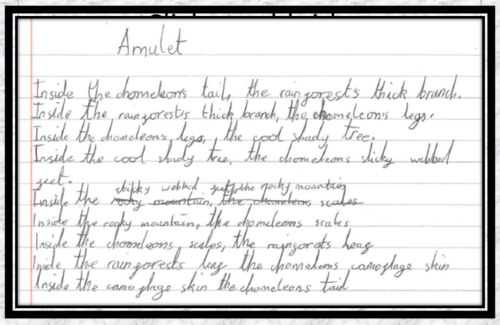 Amulet
Inside the chomeleons tail, the raingorests thick branch.
Inside the raingorests thick branch, the chomeleons legs.
Inside the chomeleons legs, the cool shady tree.
Inside the cool shady tree, the chomeleons sticky webbed
geet.
sticky webbed geet, the rocky mountain
Inside the rocky mountain, the chomeleons scales
Inside the rocky mountain, the chomeleons scales
Inside the chomeleons, scales, the raingorests leag
Inside the raingorests leag the chomeleons camoglage skin
Inside the camoglage skin the chomeleons tail